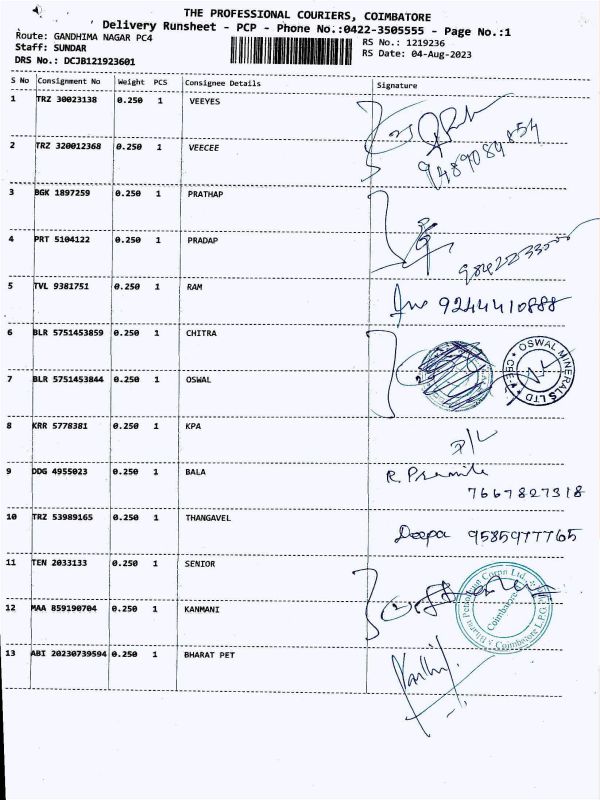 THE PROFESSIONAL COURIERS, COIMBATORE
Delivery Runsheet - PCP - Phone No.:0422-3505555 - Page No.:1
Route: GANDHIMA NAGAR PC4
RS No.: 1219236
Staff: SUNDAR
RS Date: 04-Aug-2023
DRS No.: DCJB121923601
S No Consignment No Weight PCS Consignee Details Signature
1 TRZ 30023138 0.250 1 VEEYES
2 TRZ 320012368 0.250 1 VEECEE
9489084854
3 BGK 1897259 0.250 1 PRATHAP
4 PRT 5104122 0.250 1 PRADAP
5 TVL 9381751 0.250 1 RAM
9244410888
6 BLR 5751453859 0.250 1 CHITRA
OSWAL MINERALS LTD
7 BLR 5751453844 0.250 1 OSWAL
8 KRR 5778381 0.250 1 KPA
9 DDG 4955023 0.250 1 BALA
R.
7667827318
10 TRZ 53989165 0.250 1 THANGAVEL
Deepa 9585977765
11 TEN 2033133 0.250 1 SENIOR
Bharat Petroleum Corpn Ltd.
Coimbatore
Coimbatore L.P.G.
12 MAA 859190704 0.250 1 KANMANI
13 ABI 20230739594 0.250 1 BHARAT PET